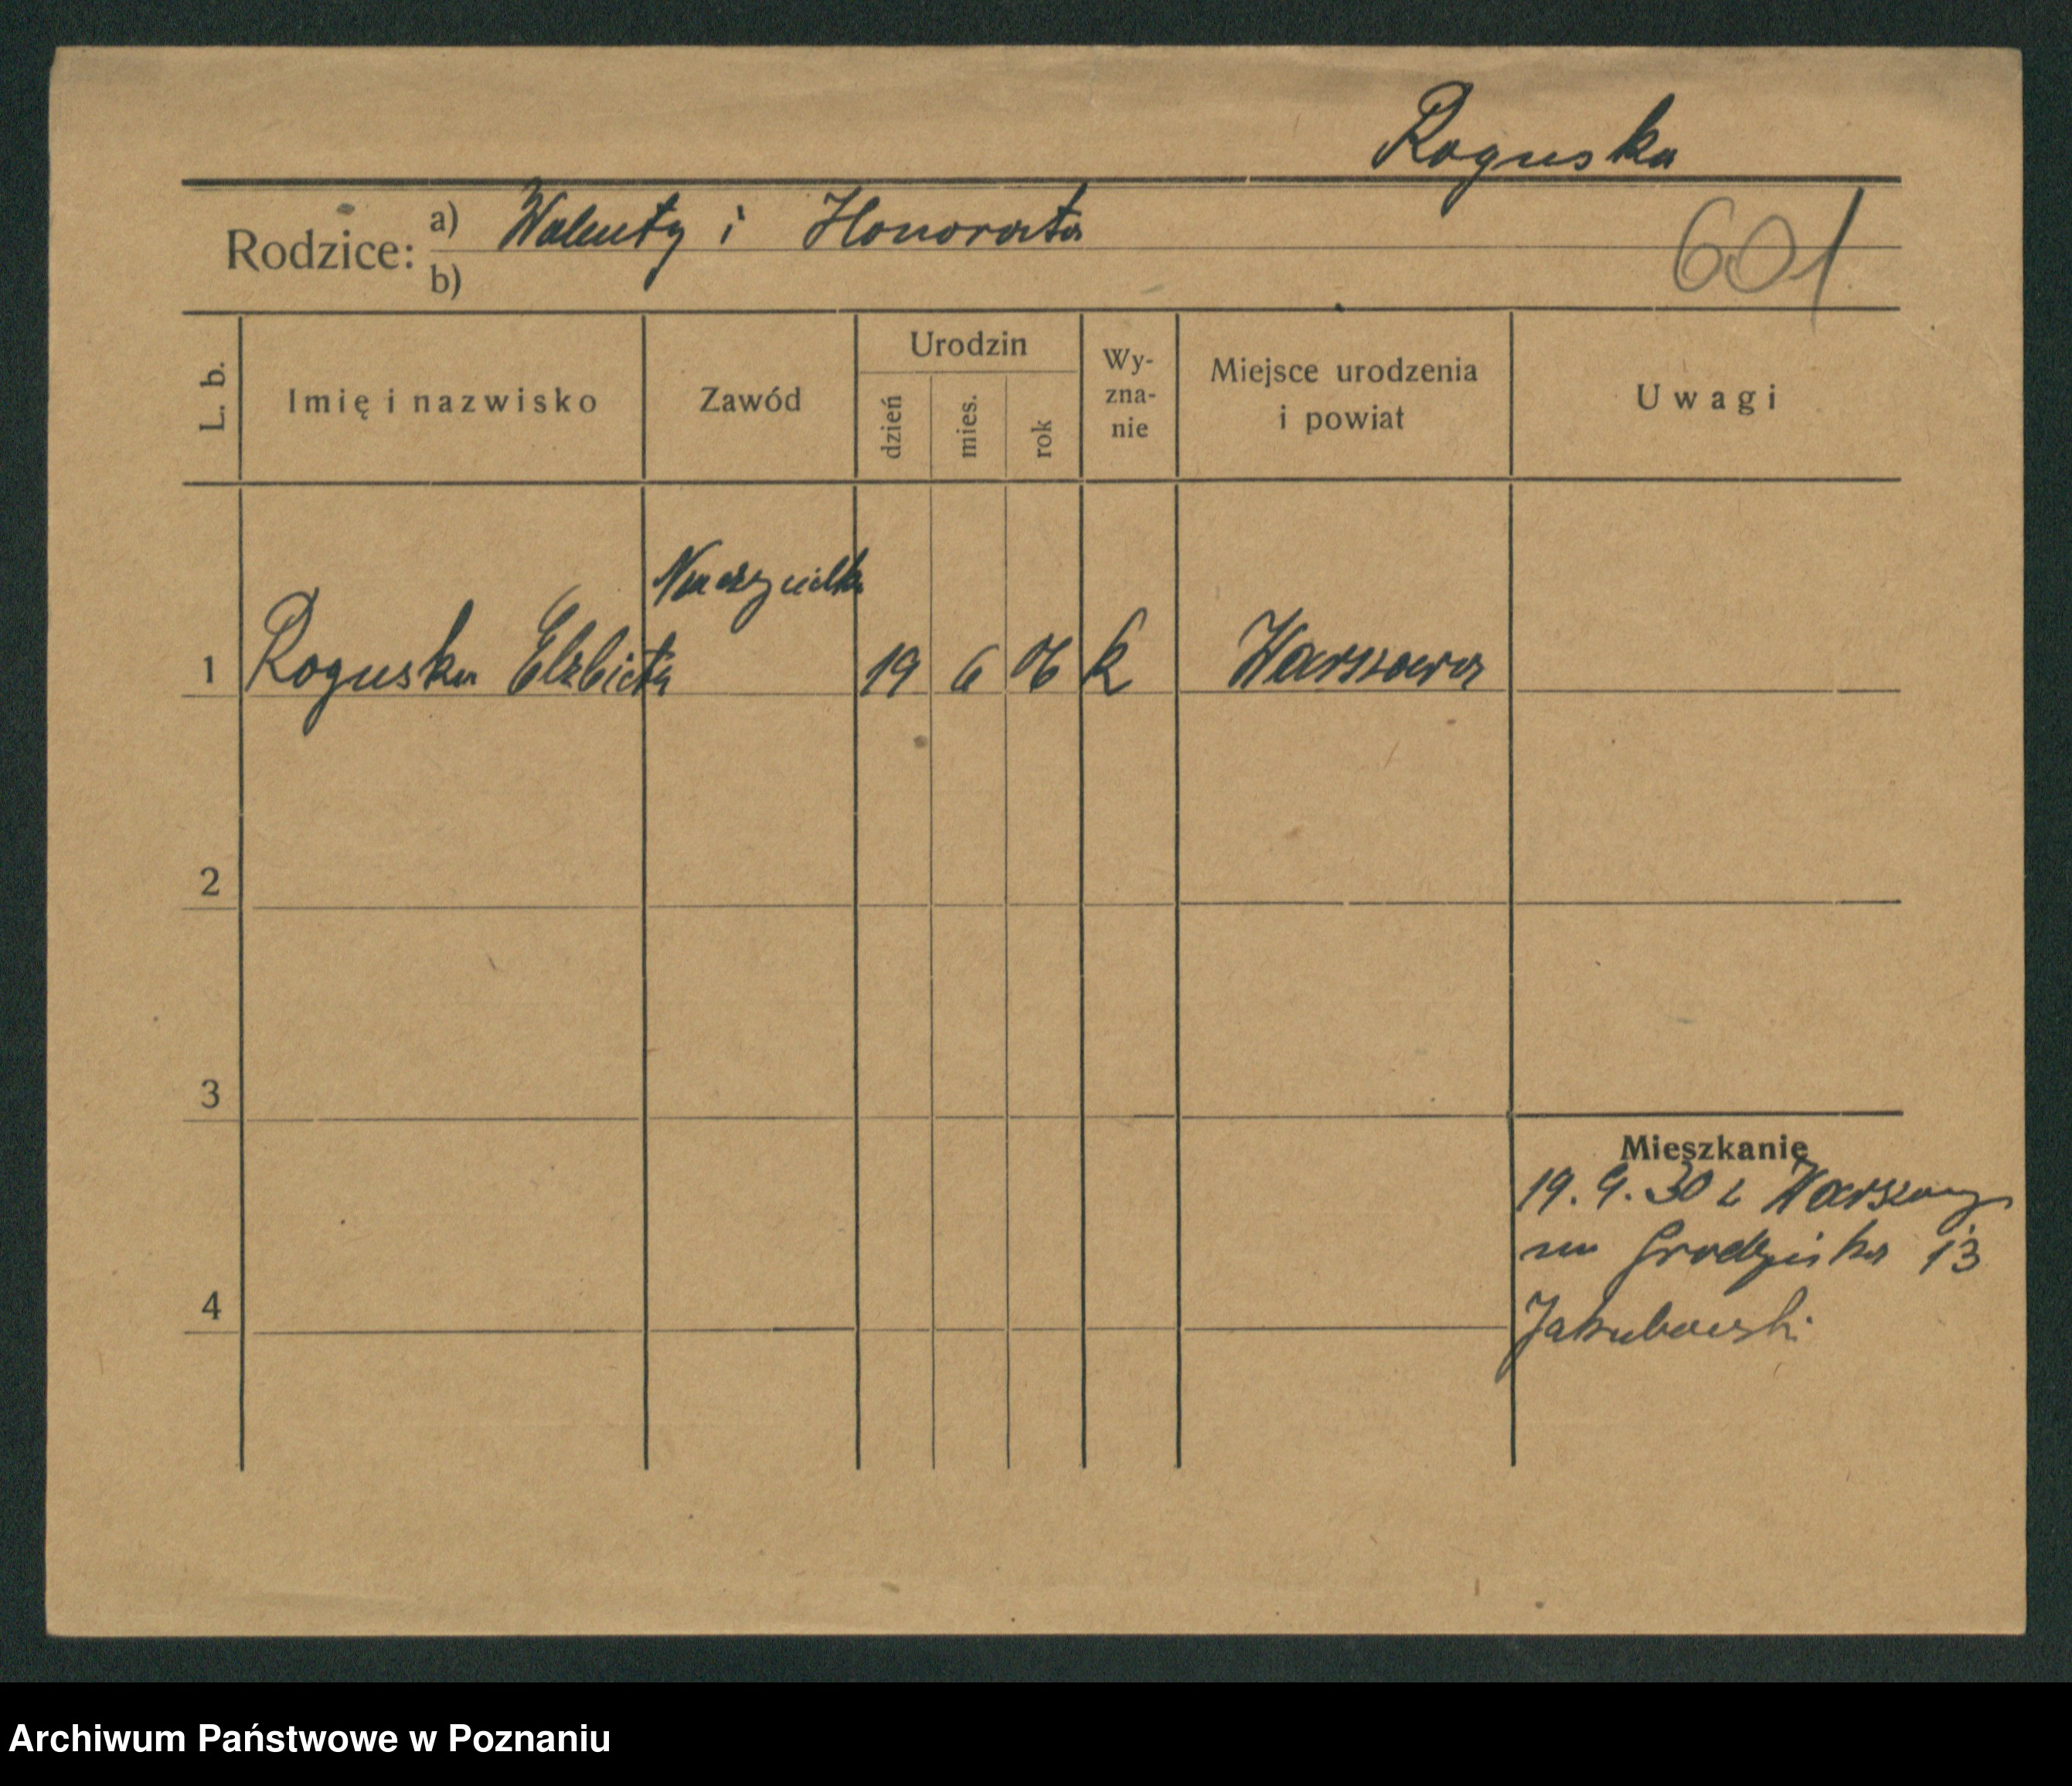 Roguska
Rodzice: a) Walenty i Honorata
b)
601
L. b.
Imię i nazwisko
Zawód
Urodzin
dzień
mies.
rok
Wy-
zna-
nie
Miejsce urodzenia
i powiat
Uwagi
Nauczycielka
1 Roguska Elżbieta 19 6 06 k Warszawa
2
3
Mieszkanie
19. 9. 30 z Warszawy
na Grodziska 13
4
Jakubowski
Archiwum Państwowe w Poznaniu